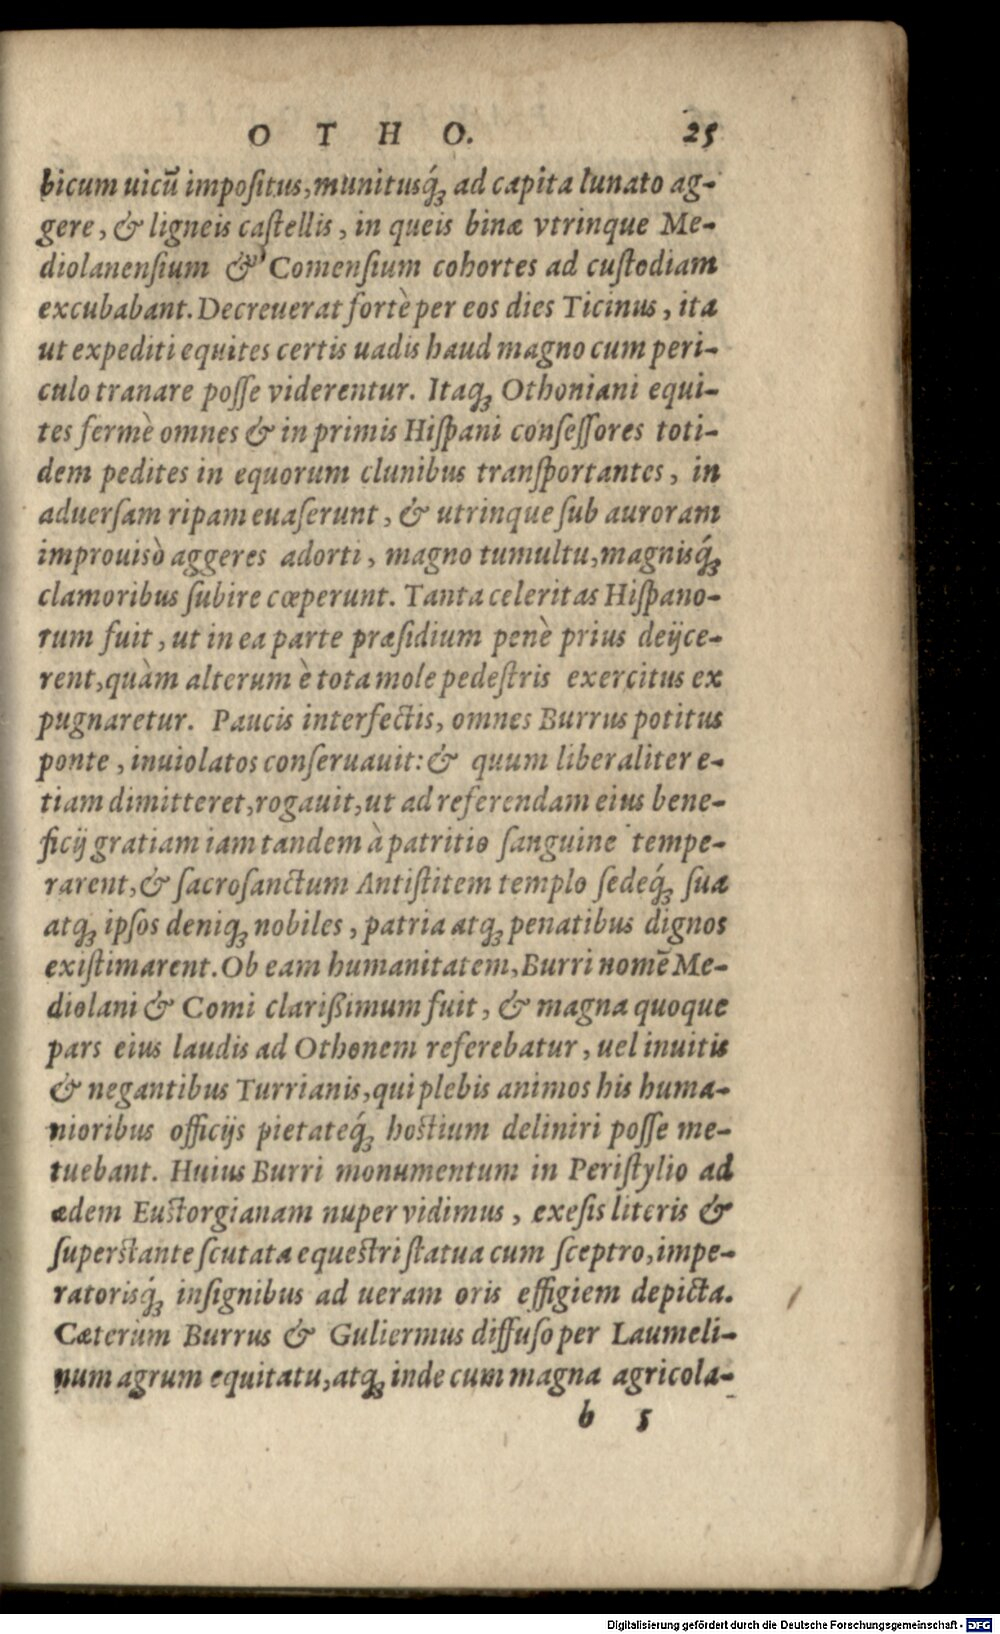 OTHO. 25
bicum uicū impositus, munitusq́; ad capita lunato ag-
gere, & ligneis castellis, in queis binæ vtrinque Me-
diolanensium & Comensium cohortes ad custodiam
excubabant. Decreuerat fortè per eos dies Ticinus, ita
ut expediti equites certis uadis haud magno cum peri-
culo tranare posse viderentur. Itaq; Othoniani equi-
tes fermè omnes & in primis Hispani consessores toti-
dem pedites in equorum clunibus transportantes, in
aduersam ripam euaserunt, & utrinque sub auroram
improuisò aggeres adorti, magno tumultu, magnisq́;
clamoribus subire cœperunt. Tanta celeritas Hispano-
rum fuit, ut in ea parte præsidium penè prius deijce-
rent, quàm alterum è tota mole pedestris exercitus ex
pugnaretur. Paucis interfectis, omnes Burrus potitus
ponte, inuiolatos conseruauit: & quum liberaliter e-
tiam dimitteret, rogauit, ut ad referendam eius bene-
ficij gratiam iam tandem à patritio sanguine tempe-
rarent, & sacrosanctum Antistitem templo sedeq́; sua
atq; ipsos deniq; nobiles, patria atq; penatibus dignos
existimarent. Ob eam humanitatem, Burri nomē Me-
diolani & Comi clarißimum fuit, & magna quoque
pars eius laudis ad Othonem referebatur, uel inuitis
& negantibus Turrianis, qui plebis animos his huma-
nioribus officijs pietateq́; hostium deliniri posse me-
tuebant. Huius Burri monumentum in Peristylio ad
ædem Eustorgianam nuper vidimus, exesis literis &
superstante scutata equestri statua cum sceptro, impe-
ratorisq́; insignibus ad ueram oris effigiem depicta.
Cæterùm Burrus & Guliermus diffuso per Laumeli-
num agrum equitatu, atq; inde cum magna agricola-
b 5
Digitalisierung gefördert durch die Deutsche Forschungsgemeinschaft - DFG